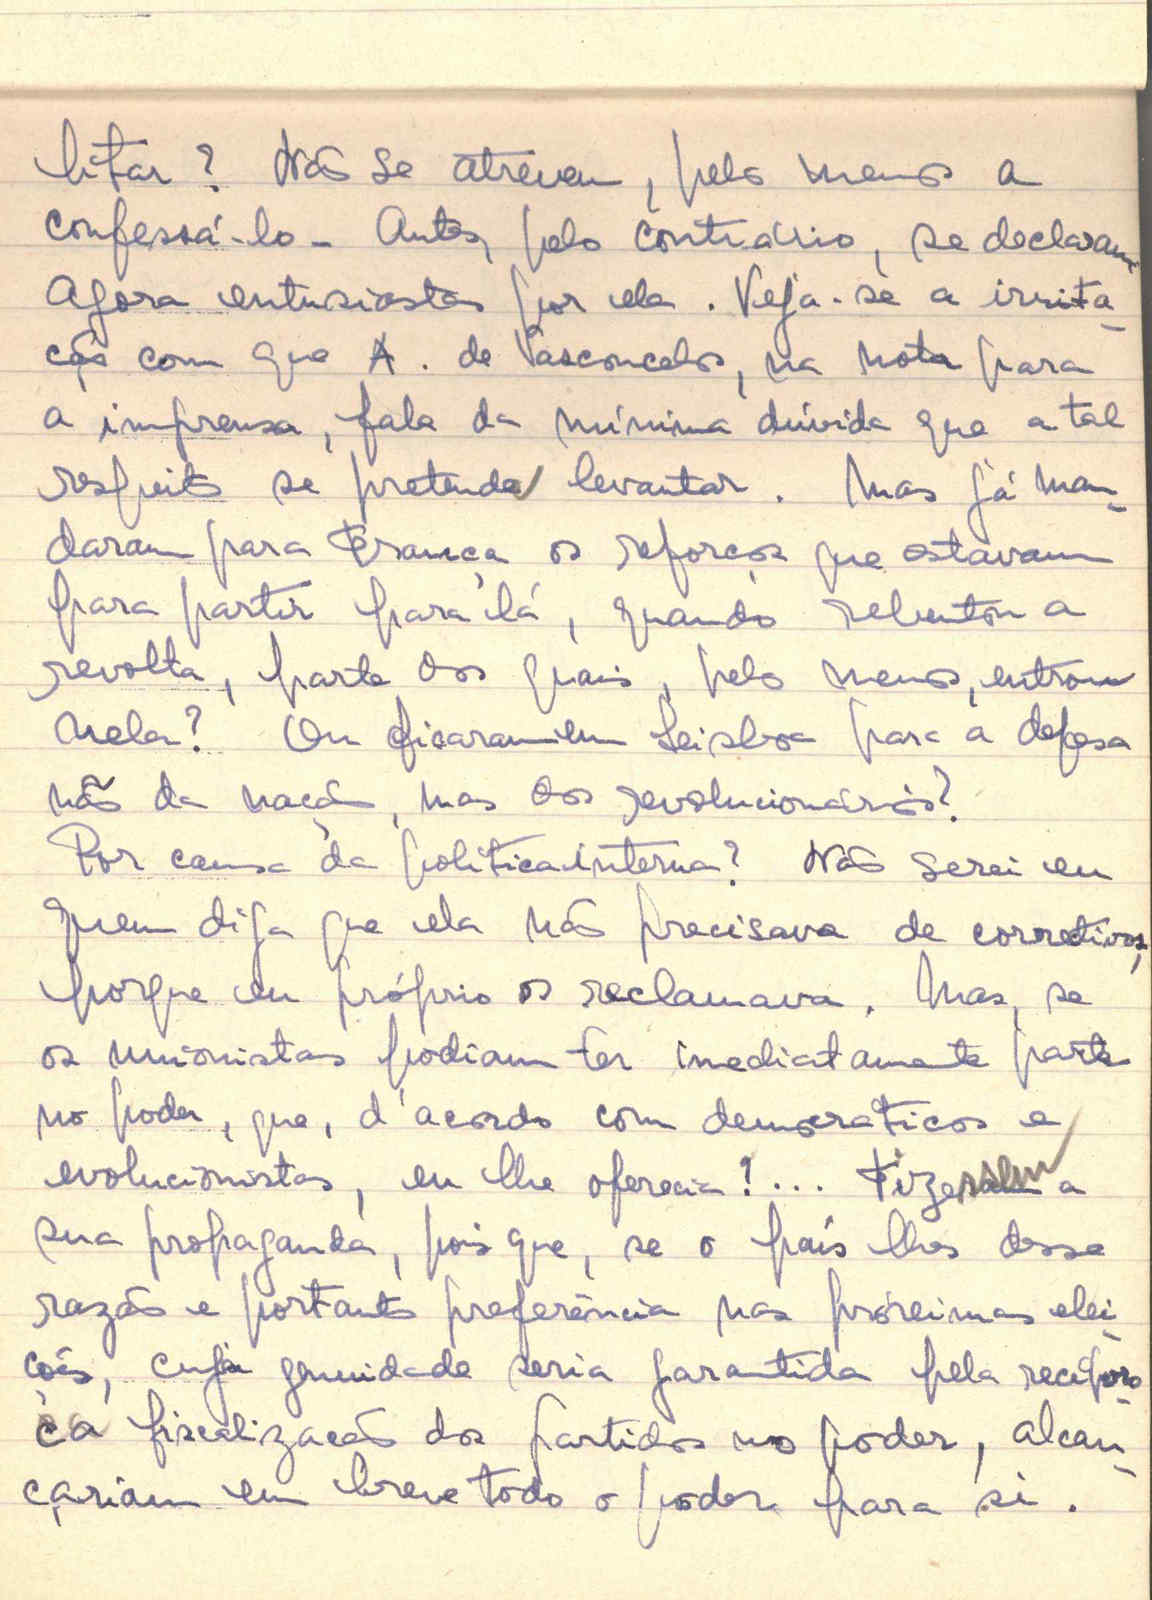 litar? Não se atrevem, pelo menos a
confessá-lo - Antes, pelo contrário, se declaram
agora entusiastas por ela. Veja-se a irrita-
ção com que A. de Vasconcelos, na nota para
a imprensa, fala da mínima dúvida que a tal
respeito se pretenda levantar. Mas já man-
daram para França os reforços que estavam
para partir para lá, quando rebentou a
revolta, parte dos quais, pelo menos, entrou
nela? Ou ficaram em Lisboa para a defesa
não da nação, mas dos revolucionários?
Por causa da política interna? Não serei eu
quem diga que ela não precisava de corretivos,
porque eu próprio os reclamava. Mas, se
os unionistas podiam ter imediatamente parte
no poder, que, d'acordo com democráticos e
evolucionistas, eu lhe oferecia!... Fizessem a
sua propaganda, pois que, se o país lhes desse
razão e portanto preferência nas próximas elei-
ções, cuja genuidade seria garantida pela recípro-
ca fiscalização dos partidos no poder, alcan-
çariam em breve todo o poder para si.